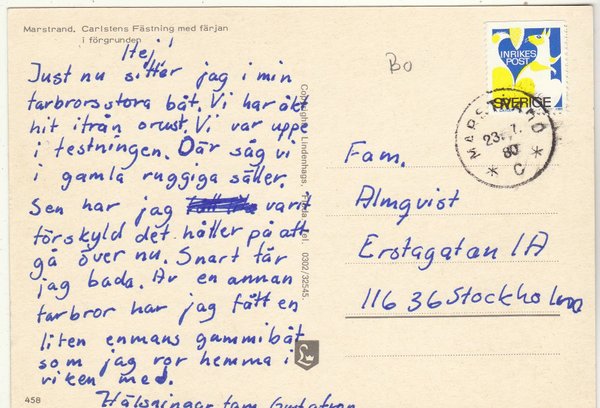 Marstrand, Carlstens Fästning med färjan
i förgrunden
Hej!
Just nu sitter jag i min
farbrors stora båt. Vi har åkt
hit ifrån orust. Vi var uppe
i festningen. Där såg vi
i gamla ruggiga säller.
Sen har jag varit
förskyld det håller på att
gå över nu. Snart får
jag bada. Av en annan
farbror har jag fått en
liten enmans gammibåt
som jag ror hemma i
viken med.
Hälsningar fam Gustafson
458
Bo
INRIKES
POST
SVERIGE
MARSTRAND
23. 7.
80
* C *
Fam.
Almqvist
Erstagatan 1A
116 36 Stockholm
Copyright: Lindenhags, Tel. 0302/32545.